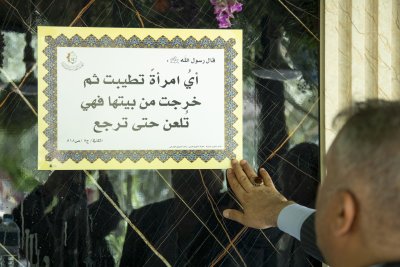 قال رسول الله ﷺ:
أيُ امرأةَ تطيبت ثم
خرجت من بيتها فهي
تُلعن حتى ترجع